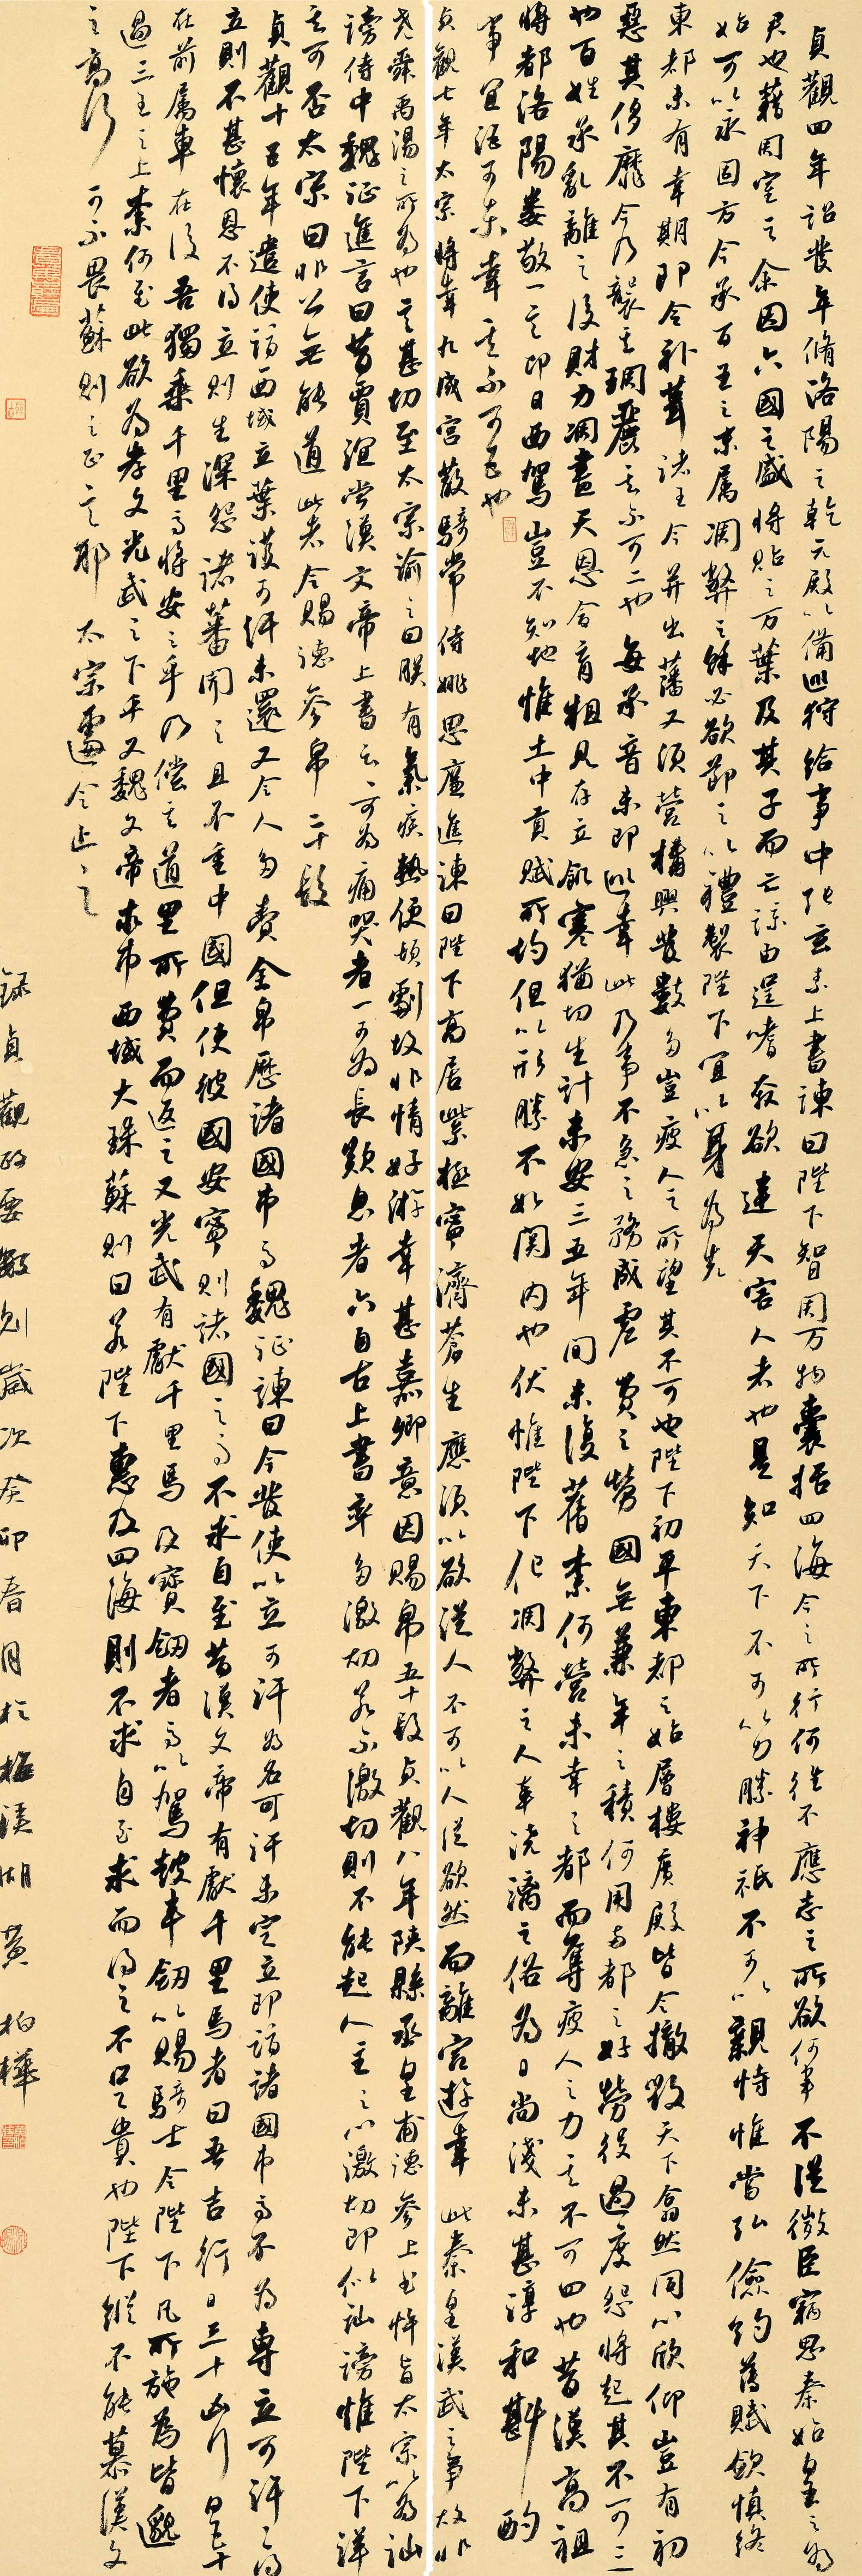 貞觀四年詔發卒脩洛陽之乾元殿以備巡狩給事中張玄素上書諫曰陛下智周万物囊括四海令之所行何往不應志之所欲何事不從微臣竊思秦始皇之為
君也藉周室之余因六國之盛將貽之万葉及其子而亡諒由逞嗜奔欲逆天害人者也是知天下不可以力勝神祇不可以親恃惟當弘儉約薄賦斂慎終
始可以永固方今承百王之末属凋弊之餘必欲節之以禮製陛下宜以身為先
東都未有幸期即令補葺諸王今并出藩又須營構興發數多豈疲人之所望其不可也陛下初平東都之始層樓廣殿皆令撤毀天下翕然同心欣仰豈有初
惡其侈靡今乃襲其彫麗其不可二也每承音未即巡幸此乃事不急之務成虛費之勞國無兼年之積何用兩都之好勞役過度怨將起其不可三
也百姓承亂離之後財力凋盡天恩含育粗見存立飢寒猶切生計未安三五年間未復舊柰何營未幸之都而奪疲人之力其不可四也昔漢高祖
將都洛陽婁敬一言即日西駕豈不知地惟土中貢賦所均但以形勝不如関内也伏惟陛下化凋弊之人革澆漓之俗為日尚淺未甚淳和斟酌
事宜詎可東幸其不可五也
貞觀七年太宗將幸九成宮散騎常侍姚思廉進諫曰陛下高居紫極寧濟蒼生應須以欲從人不可以人從欲然而離宮遊幸此秦皇漢武之事故非
尧舜禹湯之所為也言甚切至太宗諭之曰朕有氣疾熱便頓劇故非情好游幸甚嘉卿意因賜帛五十段貞觀八年陝縣丞皇甫德參上書忤旨太宗以為訕
謗侍中魏証進言曰昔賈誼當漢文帝上書云可為痛哭者一可為長歎息者六自古上書率多激切若不激切則不能起人主之心激切即似訕謗惟陛下詳
其可否太宗曰非公無能道此者令賜德參帛二十段
貞觀十五年遣使詣西域立葉護可汗未還又令人多賫金帛歷諸國市馬魏証諫曰今發使以立可汗為名可汗未定立即詣諸國市馬不為專立可汗可汗得
立則不甚懷恩不得立則生深怨諸蕃聞之且不重中國但使彼國安寧則諸國之馬不求自至昔漢文帝有獻千里馬者曰吾吉行日三十凶行日五十
在前属車在後吾獨乘千里馬將安之乎乃償其道里所費而返之又光武有獻千里馬及寶劒者馬以駕鼓車劒以賜騎士今陛下凡所施為皆邈
過三王之上柰何至此欲為孝文光武之下乎又魏文帝求市西域大珠蘇則曰若陛下惠及四海則不求自至求而得之不足貴也陛下縱不能慕漢文
之高行可不畏蘇則之正言耶太宗遽令止之
録貞觀政要數則歲次癸卯春月於梅溪湖黄柏樺